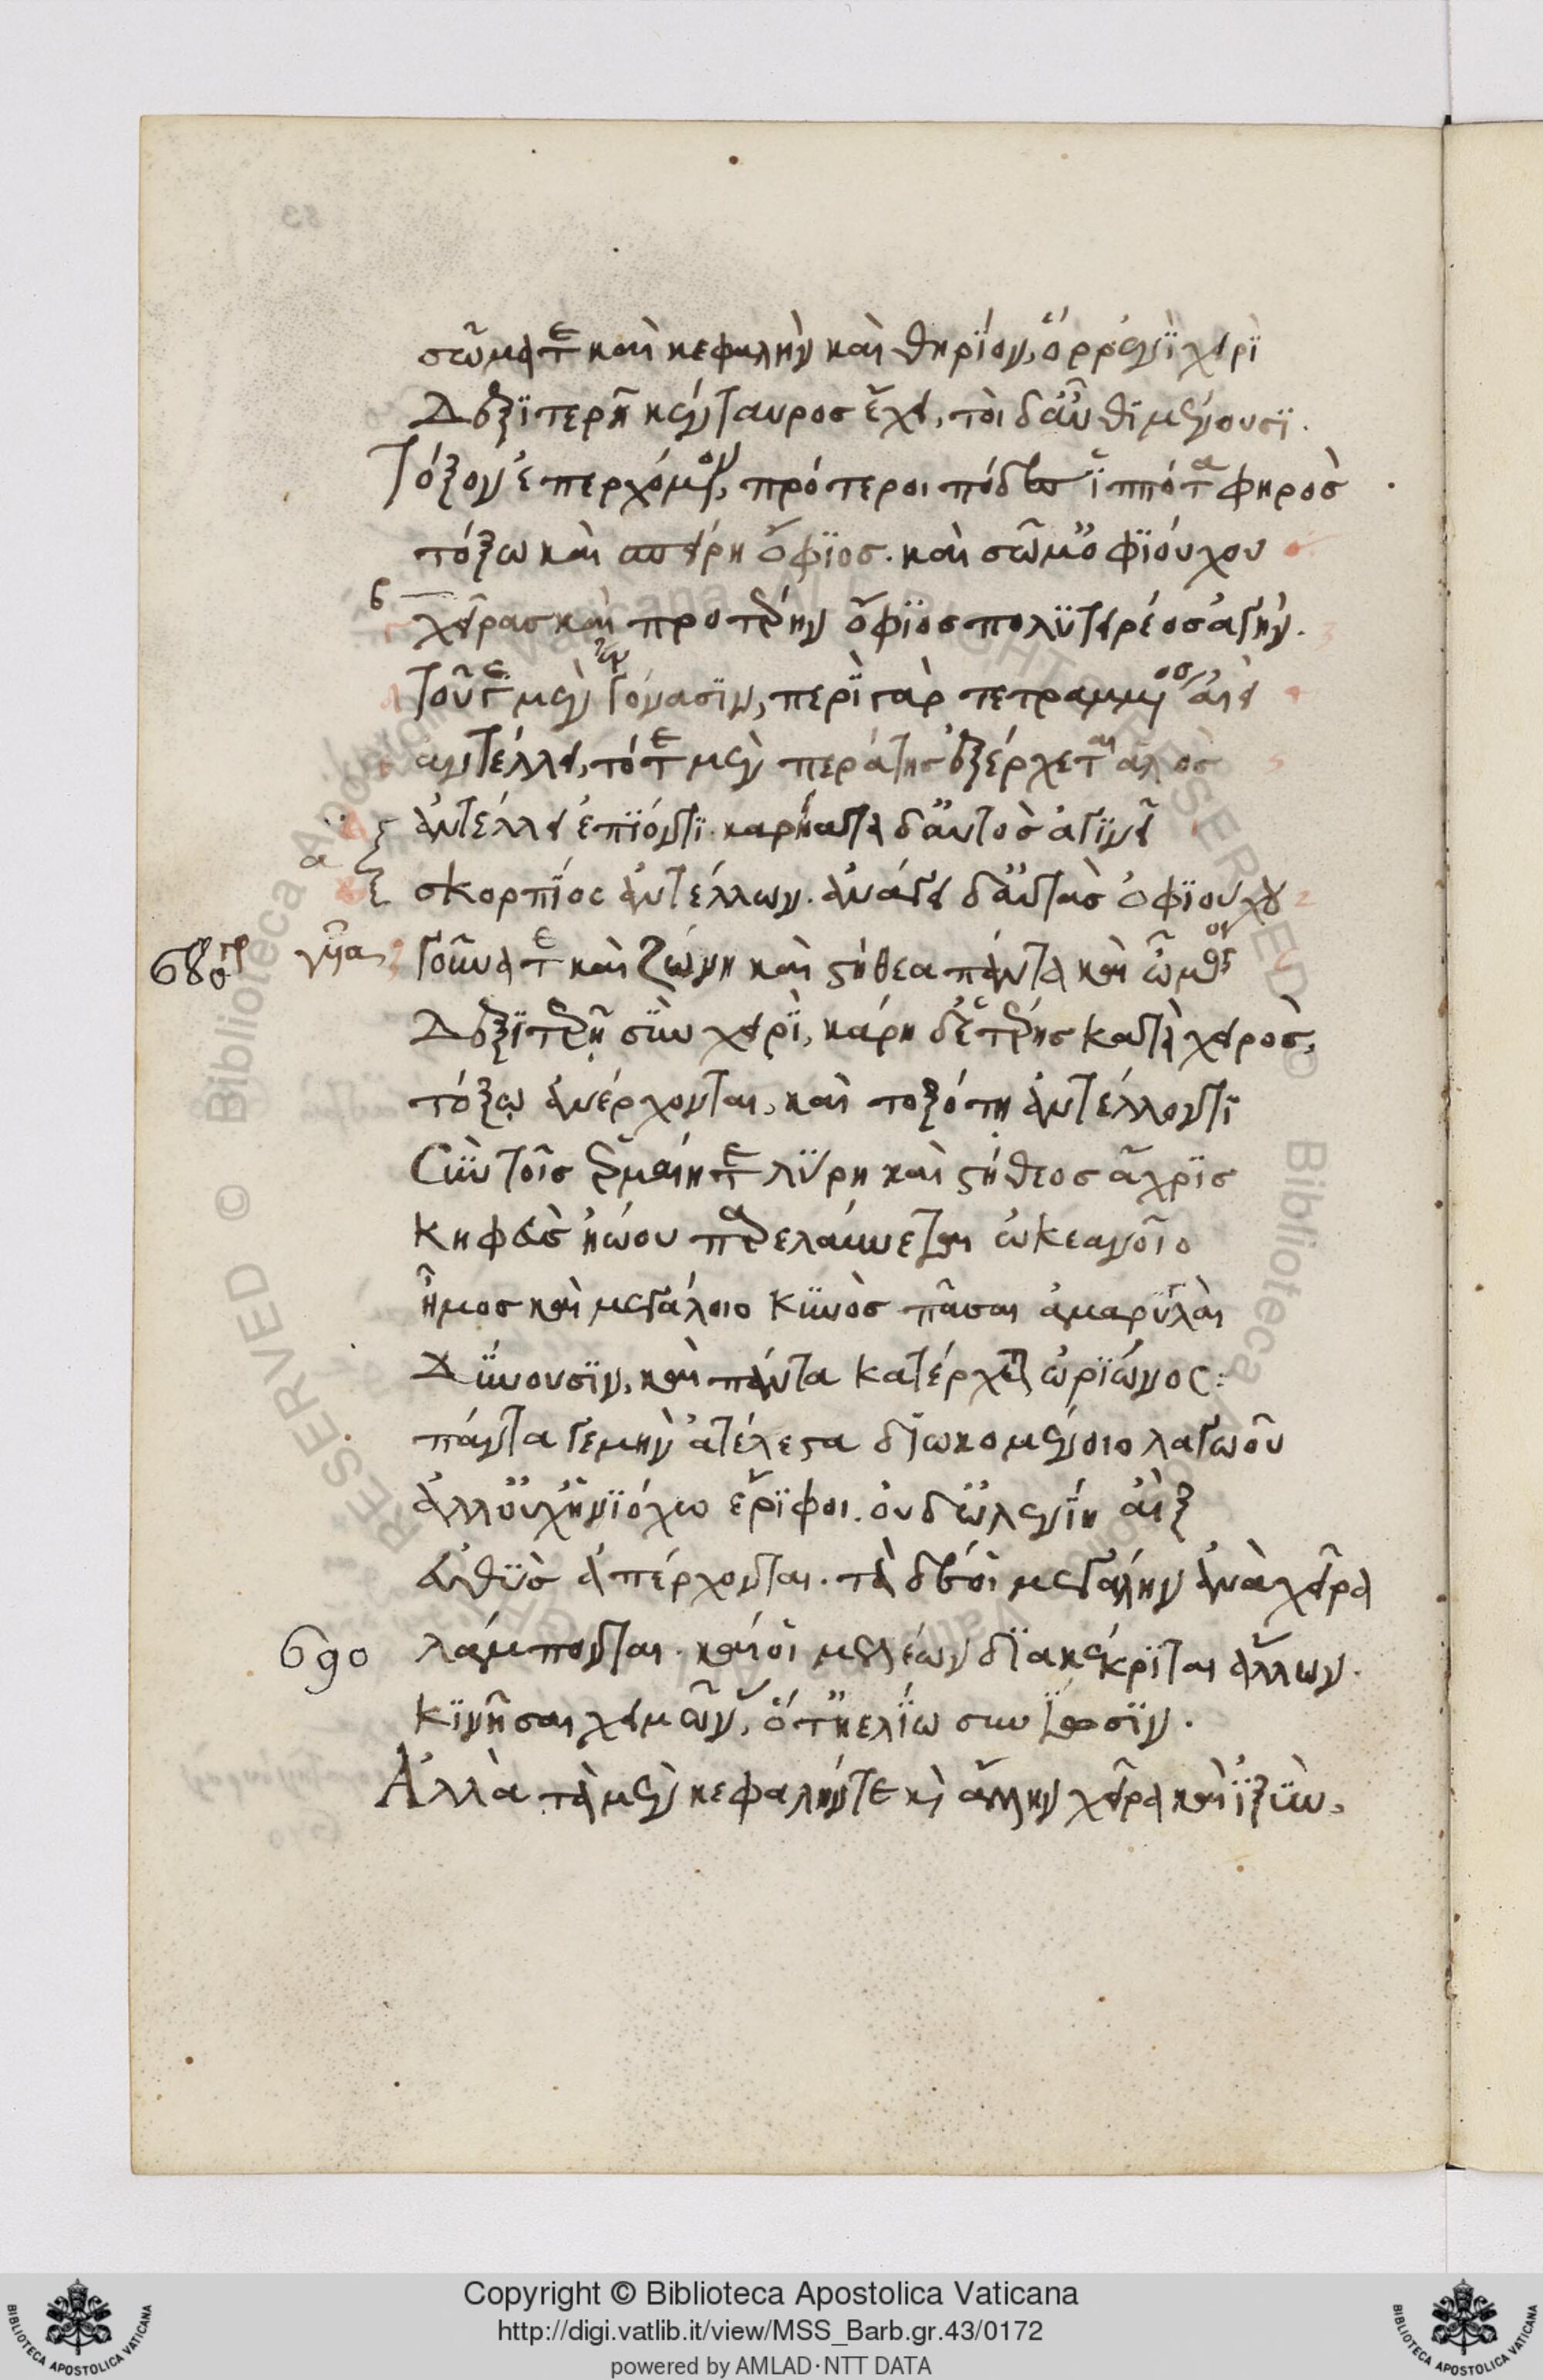 σῶμά τε καὶ κεφαλὴν καὶ θηρίον, ὅρρ' ἐνὶ χειρὶ
Δεξιτερῆ κένταυρος ἔχει, τοὶ δ' αὖθι μένουσι.
Τόξον ἐπερχόμενον, πρότεροι πόδες ἱππότα φηρὸς
τόξω καὶ σπείρη ὄφιος. καὶ σῶμ' ὀφιούχου
6 χεῖρας καὶ προτέρην ὄφιος πολϋτειρέος ἀγήν.
Τοῦ γε μὲν ἐν γόνασιν, περὶ γὰρ τετραμμένος αἰεὶ
ἀντέλλει, τότε μὲν περάτης ἐξέρχεται ἁλὸς
ἀντέλλει ἐπιόντι. καρήατι δ' αὐτὸς ἀγινεῖ
α σκορπίος ἀντέλλων. ἀνάγει δ' αὐτὰς ὀφιούχου
680 γυῖα Γοῦνά τε καὶ ζώνη καὶ στήθεα πάντα καὶ ὦμος
Δεξιτερῆ σὺν χειρὶ, κάρη δ' ἑτέρης κατὰ χειρὸς,
τόξω ἀνέρχονται, καὶ τοξότη ἀντέλλοντι
Σὺν τοῖς ἑρμαίη τε λύρη καὶ στήθεος ἄχρις
Κηφεὺς ἠώου παρελαύνεται ὠκεανοῖο
ἦμος καὶ μεγάλοιο Κυνὸς πᾶσαι ἀμαρυγαὶ
Δύνουσιν, καὶ πάντα κατέρχεται ὠρίωνος:
πάντα γε μὴν ἀτέλεστα διωκομένοιο λαγωοῦ
ἀλλ' οὐχ ἡνιόχω ἔριφοι. οὐδ' ὠλενίη αἲξ
εὐθὺς ἀπέρχονται. τὰ δέ οἱ μεγάλην ἀνὰ χεῖρα
690 λάμπονται. καί οἱ μελέων διακέκριται ἄλλων.
Κινῆσαι χειμῶν', ὅτ' ἠελίω συνίωσιν.
Ἀλλὰ τὰ μὲν κεφαλήν τε κὶ ἄλλην χεῖρα καὶ ἰξὺν,
Copyright © Biblioteca Apostolica Vaticana
http://digi.vatlib.it/view/MSS_Barb.gr.43/0172
powered by AMLAD·NTT DATA